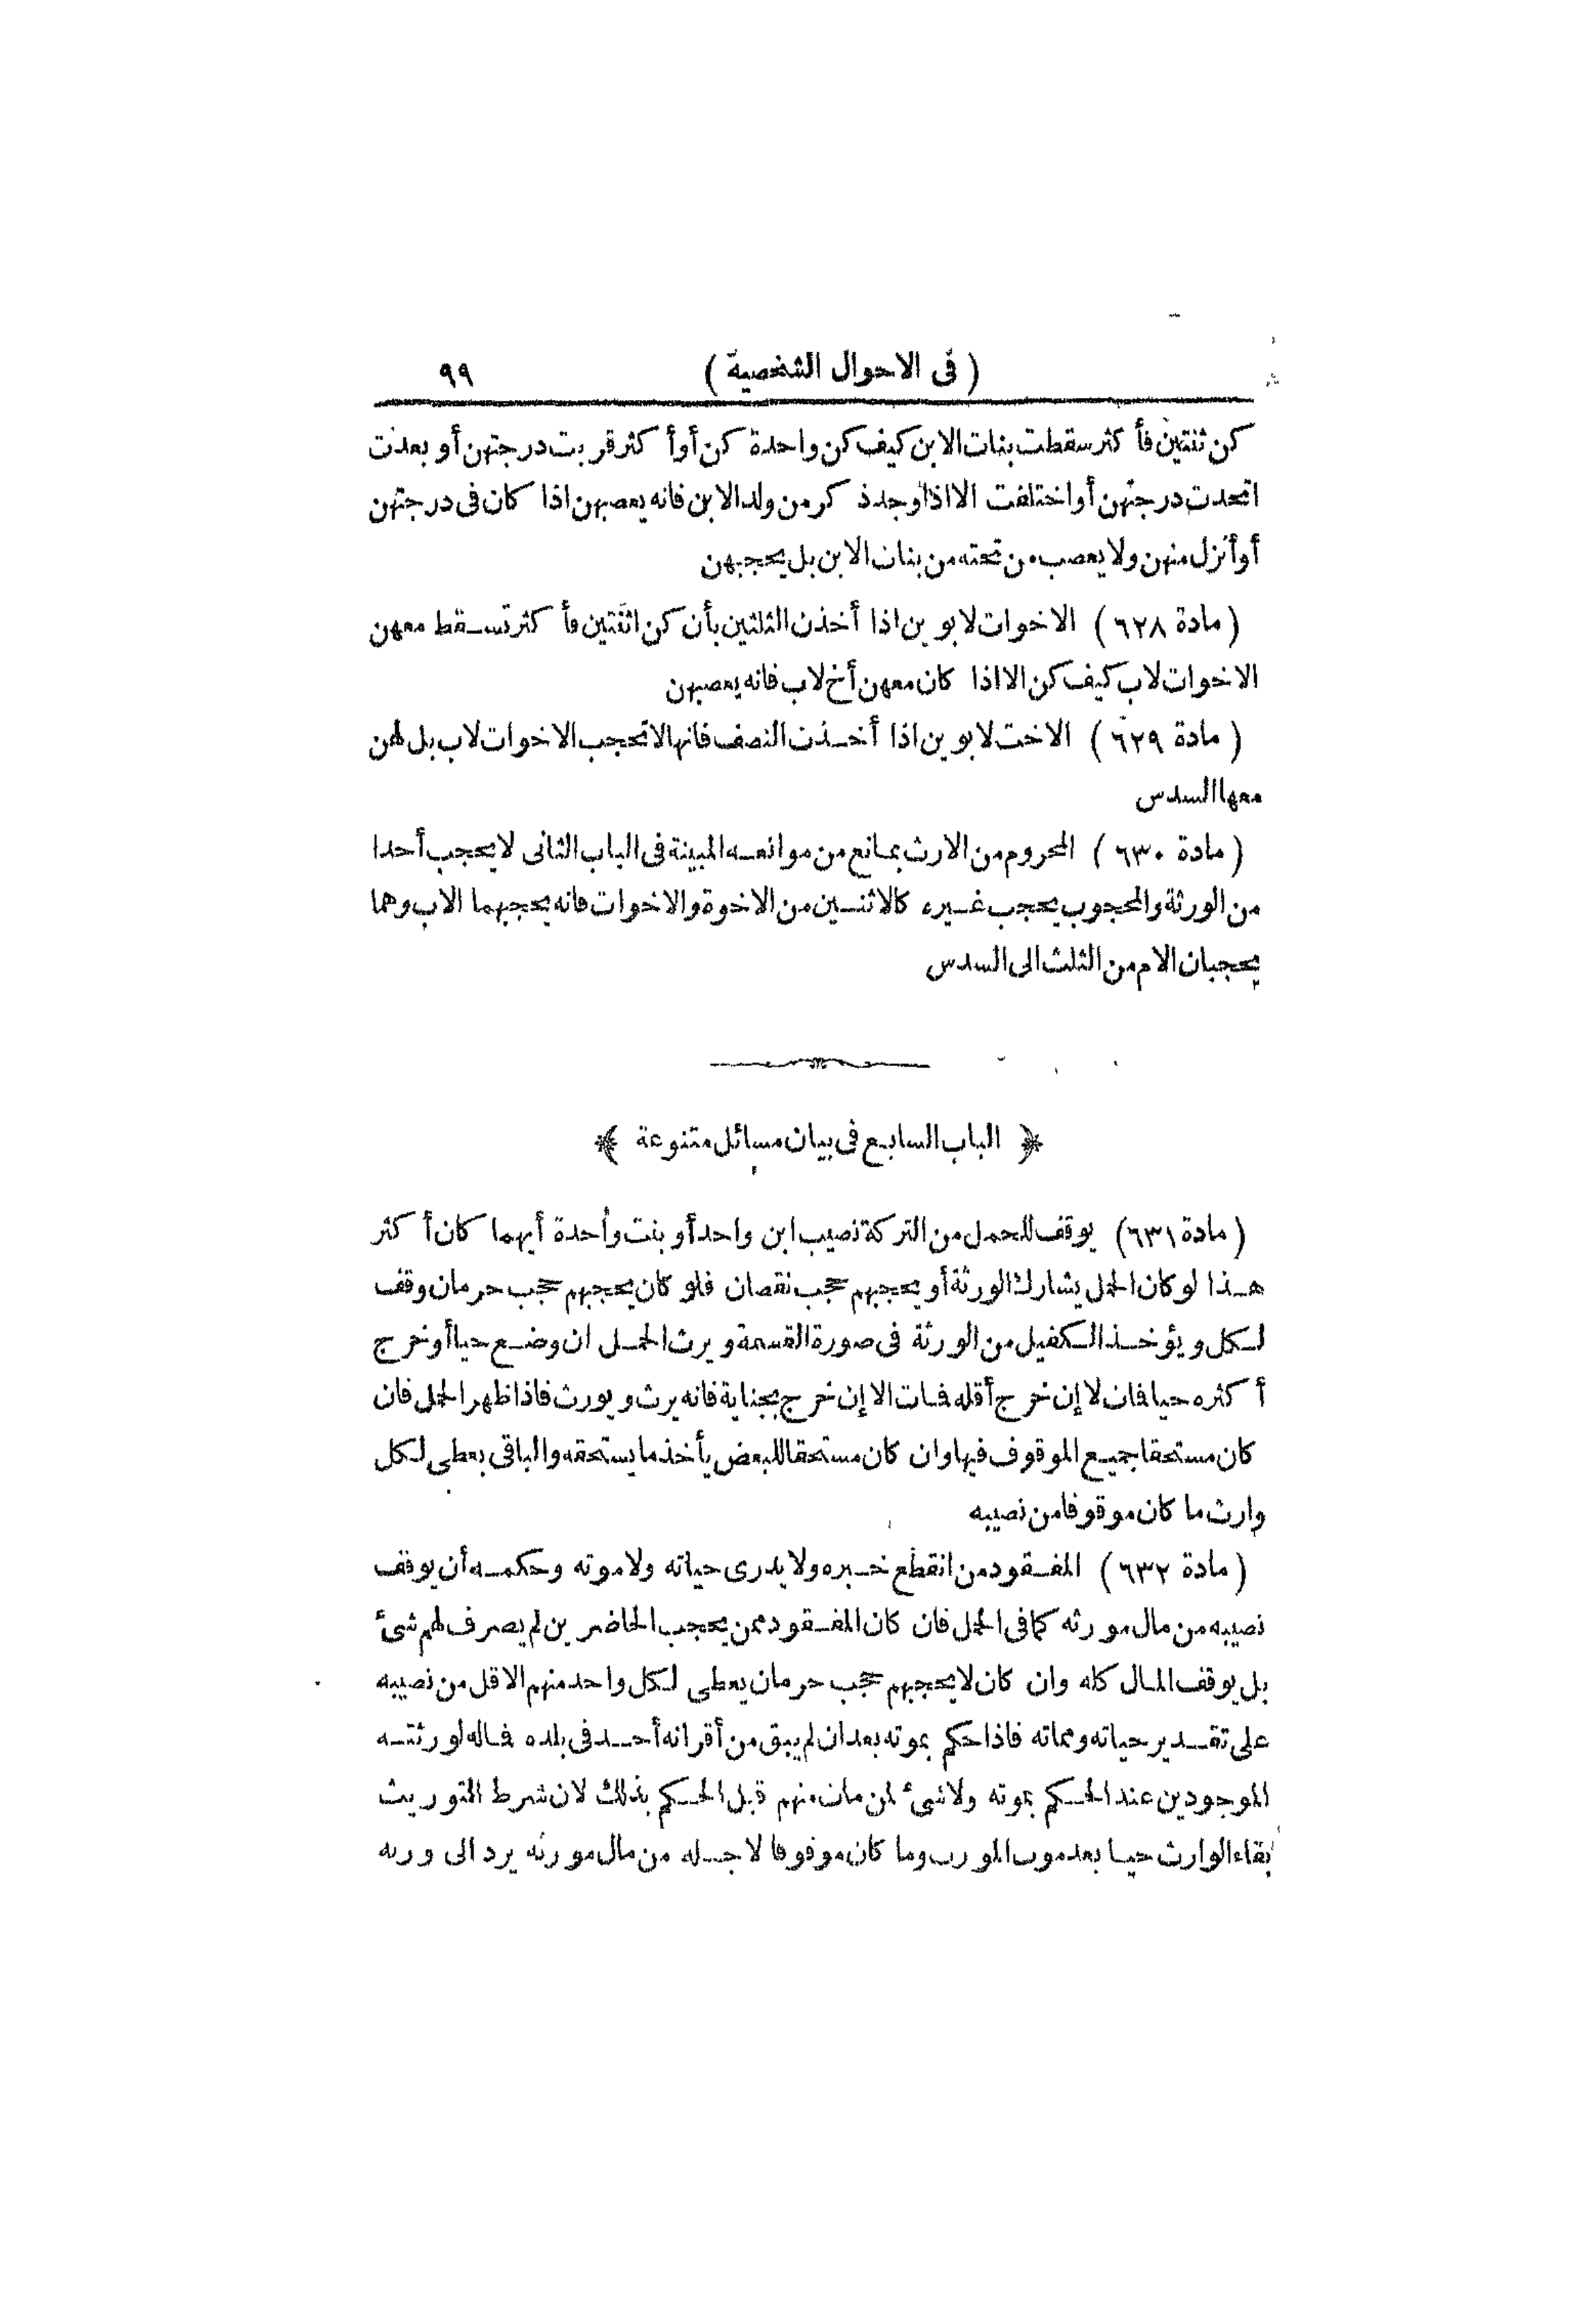 ( فى الاحوال الشخصية ) ٩٩
كن ثنتين فأ كثر سقطت بنات الابن كيف كن واحدة كن أو أ كثر قربت درجتهن أو بعدت
اتحدت درجتهن أو اختلفت الا اذا وجد ذ كر من ولد الابن فانه يعصبهن اذا كان فى درجتهن
أو أنزل منهن ولا يعصب من تحته من بنات الابن بل يحجبهن
( مادة ٦٢٨ ) الاخوات لابوين اذا أخذن الثلثين بأن كن اثنتين فأ كثر تسقط معهن
الاخوات لاب كيف كن الا اذا كان معهن أخ لاب فانه يعصبهن
( مادة ٦٢٩ ) الاخت لابوين اذا أخذت النصف فانها لا تحجب الاخوات لاب بل لهن
معها السدس
( مادة ٦٣٠ ) المحروم من الارث بمانع من موانعه المبينة فى الباب الثانى لا يحجب أحدا
من الورثة والمحجوب يحجب غيره كالاثنين من الاخوة والاخوات فانه يحجبهما الاب وهما
يحجبان الام من الثلث الى السدس
﴿ الباب السابع فى بيان مسائل متنوعة ﴾
( مادة ٦٣١ ) يوقف للحمل من التركة نصيب ابن واحد أو بنت واحدة أيهما كان أ كثر
هذا لو كان الحمل يشارك الورثة أو يحجبهم حجب نقصان فلو كان يحجبهم حجب حرمان وقف
لكل ويؤخذ الكفيل من الورثة فى صورة القسمة ويرث الحمل ان وضع حيا أو خرج
أ كثره حيا فان لا إن خرج أقله فات الا إن خرج بجناية فانه يرث ويورث فاذا ظهر الحمل فان
كان مستحقا جميع الموقوف فيها وان كان مستحقا للبعض يأخذ ما يستحقه والباقى يعطى لكل
وارث ما كان موقوفا من نصيبه
( مادة ٦٣٢ ) المفقود من انقطع خبره ولا يدرى حياته ولا موته وحكمه أن يوقف
نصيبه من مال مورثه كما فى الحمل فان كان المفقود ممن يحجب الحاضرين لم يصرف لهم شئ
بل يوقف المال كله وان كان لا يحجبهم حجب حرمان يعطى لكل واحد منهم الاقل من نصيبه
على تقدير حياته ومماته فاذا حكم بموته بعد ان لم يبق من أقرانه أحد فى بلده فماله لورثته
الموجودين عند الحكم بموته ولا شئ لمن مات منهم قبل الحكم بذلك لان شرط التوريث
بقاء الوارث حيا بعد موت المورث وما كان موقوفا لاجله من مال مورثه يرد الى ورثة